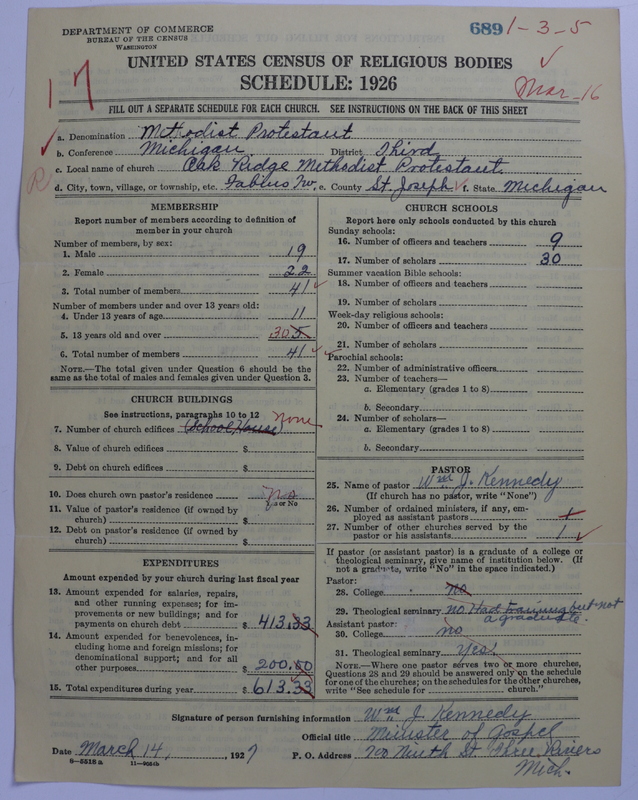 DEPARTMENT OF COMMERCE
BUREAU OF THE CENSUS
WASHINGTON
689 1-3-5
17
UNITED STATES CENSUS OF RELIGIOUS BODIES
SCHEDULE: 1926
Mar-16
FILL OUT A SEPARATE SCHEDULE FOR EACH CHURCH. SEE INSTRUCTIONS ON THE BACK OF THIS SHEET
a. Denomination Methodist Protestant
b. Conference Michigan District Third
c. Local name of church Oak Ridge Methodist Protestant.
R
d. City, town, village, or township, etc. Fabius Tw. e. County St. Joseph f. State Michigan
MEMBERSHIP
Report number of members according to definition of
member in your church
Number of members, by sex:
1. Male 19
2. Female 22
3. Total number of members 41
Number of members under and over 13 years old:
4. Under 13 years of age 11
5. 13 years old and over 30
6. Total number of members 41
NOTE.—The total given under Question 6 should be the
same as the total of males and females given under Question 3.
CHURCH BUILDINGS
See instructions, paragraphs 10 to 12
7. Number of church edifices (School House) none
8. Value of church edifices $
9. Debt on church edifices $
10. Does church own pastor's residence no
Yes or No
11. Value of pastor's residence (if owned by
church) $
12. Debt on pastor's residence (if owned by
church) $
EXPENDITURES
Amount expended by your church during last fiscal year
13. Amount expended for salaries, repairs,
and other running expenses; for im-
provements or new buildings; and for
payments on church debt $ 413.33
14. Amount expended for benevolences, in-
cluding home and foreign missions; for
denominational support; and for all
other purposes $ 200.00
15. Total expenditures during year $ 613.33
CHURCH SCHOOLS
Report here only schools conducted by this church
Sunday schools:
16. Number of officers and teachers 9
17. Number of scholars 30
Summer vacation Bible schools:
18. Number of officers and teachers
19. Number of scholars
Week-day religious schools:
20. Number of officers and teachers
21. Number of scholars
Parochial schools:
22. Number of administrative officers
23. Number of teachers—
a. Elementary (grades 1 to 8)
b. Secondary
24. Number of scholars—
a. Elementary (grades 1 to 8)
b. Secondary
PASTOR
25. Name of pastor Wm J. Kennedy
(If church has no pastor, write "None")
26. Number of ordained ministers, if any, em-
ployed as assistant pastors 1
27. Number of other churches served by the
pastor or his assistants 1
If pastor (or assistant pastor) is a graduate of a college or
theological seminary, give name of institution below. (If
not a graduate, write "No" in the space indicated.)
Pastor:
28. College no
29. Theological seminary no. Had training but not
a graduate.
Assistant pastor:
30. College no
31. Theological seminary Yes.
NOTE.—Where one pastor serves two or more churches,
Questions 28 and 29 should be answered only on the schedule
for one of the churches; on the schedules for the other churches,
write "See schedule for church."
Signature of person furnishing information Wm J. Kennedy
Official title Minister of Gospel
Date March 14, 1927 P. O. Address 720 Ninth St Three Rivers
Mich.
8—5518 a 11—9054b